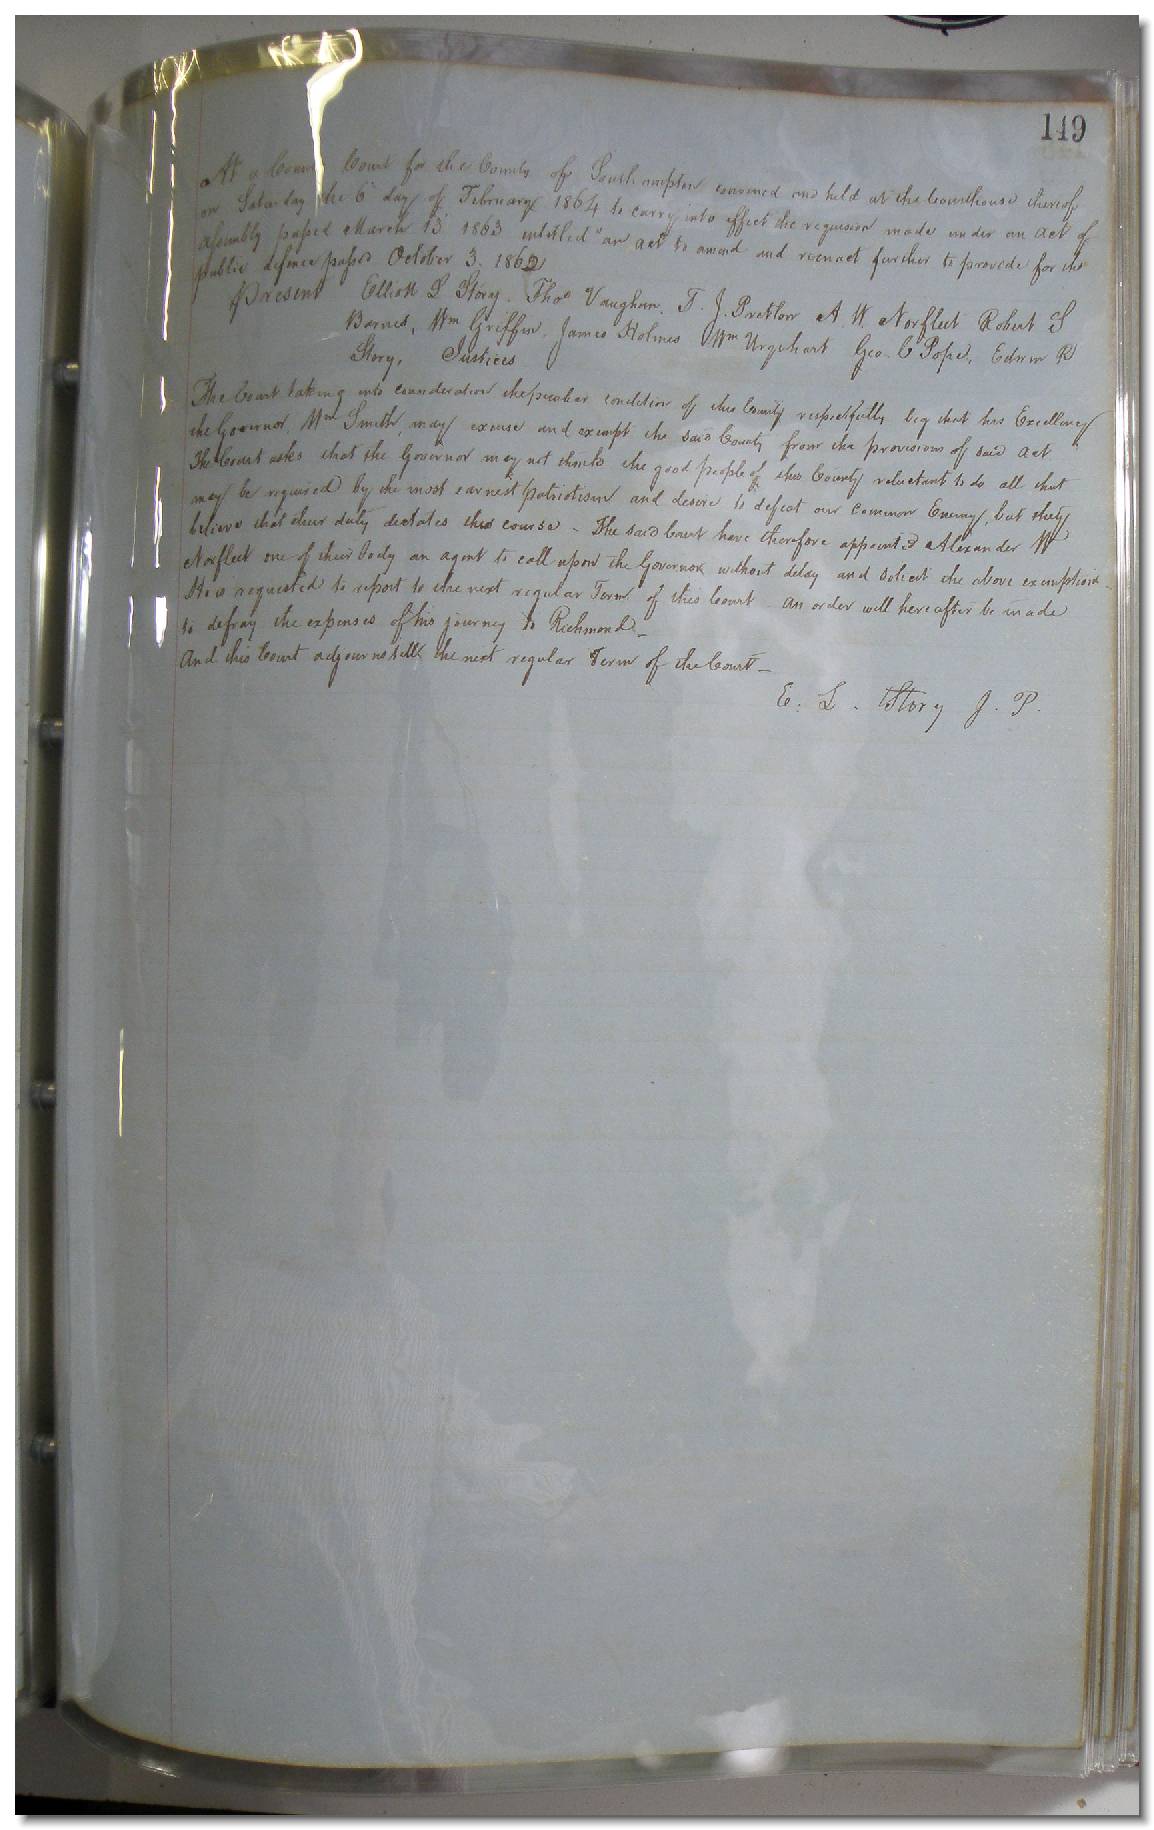 149
At a County Court for the County of Southampton convened and held at the Courthouse thereof
on Saturday the 6 day of February 1864 to carry into effect the requision made under an act of
assembly passed March 13 1863 intitled "an act to amend and reenact further to provide for the
public defence passed October 3. 1862
Present Elliott L Story. Thos Vaughan. T. J. Pretlow A. W. Norfleet Robert S
Barnes, Wm Griffin. James Holmes Wm Urquhart Geo. C Pope, Edwin R
Story, Justices
The Court taking into consideration the peculiar condition of this County respectfully beg that his Excellency
the Governor, Wm Smith, may excuse and exempt the said County from the provisions of said act
The Court asks that the Governor may not think the good people of this County reluctant to do all that
may be required by the most earnest patriotism and desire to defeat our common Enemy, but they
believe that their duty dictates this course - The said Court have therefore appointed Alexander W
Norfleet one of their body an agent to call upon the Governor without delay and solicit the above exemption
He is requested to report to the next regular Term of this Court an order will hereafter be made
to defray the expenses of his journey to Richmond -
And this Court adjourns till the next regular Term of the Court -
E. L. Story J. P.